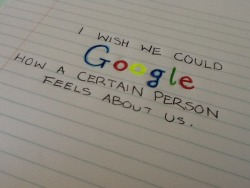 I WISH WE COULD
Google
HOW A CERTAIN PERSON
FEELS ABOUT US.